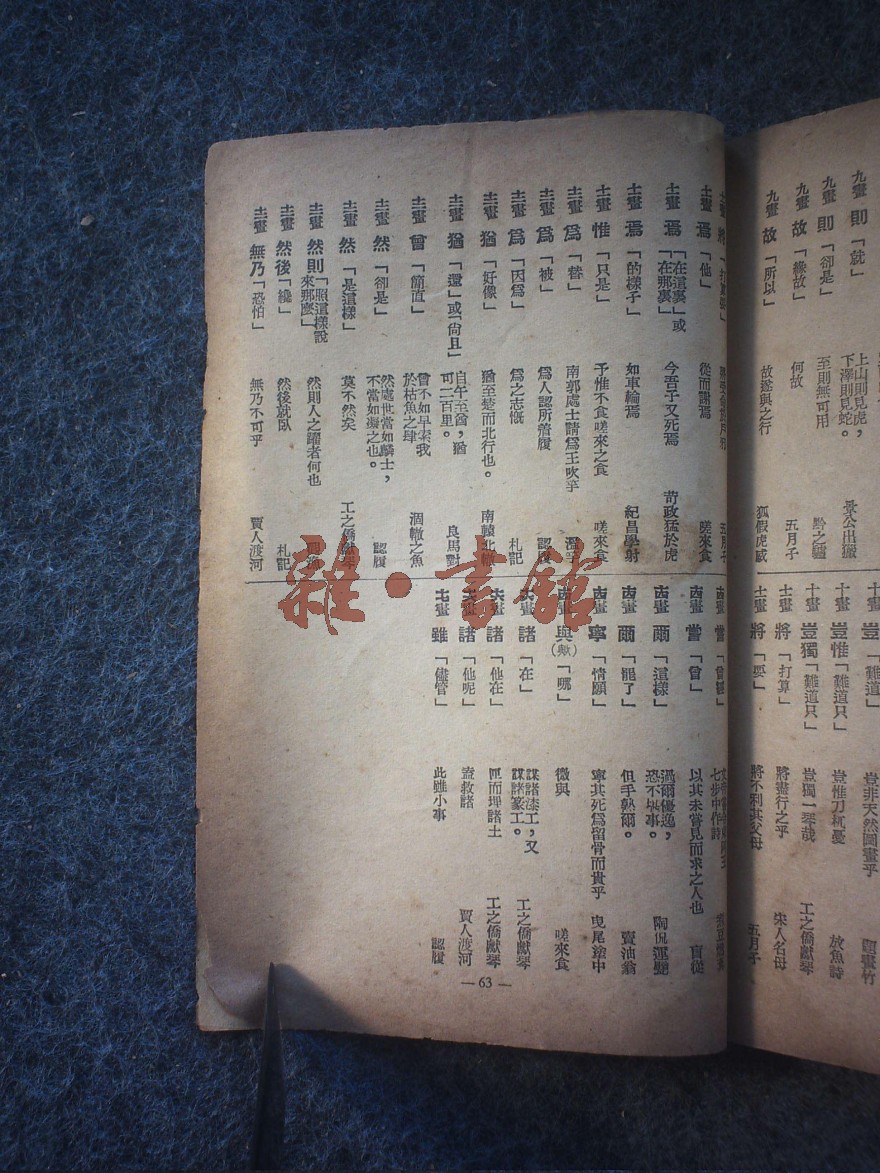 九畫 則 「就」 上山則見虎，下澤則見蛇。 景公出獵
九畫 則 「卻是」 至則無可用 黔之驢
九畫 故 「緣故」 何故 五月子
九畫 故 「所以」 故遂與之行 狐假虎威
豈非天然圖畫乎
十畫 豈惟 「難道只」 豈惟刀杌憂 放魚詩
十畫 豈獨 「難道只」 豈獨一琴哉 工之僑獻琴
十一畫 將 「打算」 將盡行之乎 宋人名母
十一畫 將 「要」 將不利其父母 五月子
十一畫 焉 「他」 從而謝焉 嗟來食
十一畫 焉 「在這裏」或「在那裏」 今吾子又死焉 苛政猛於虎
十一畫 焉 「的樣子」 如車輪焉 紀昌學射
十一畫 惟 「只是」 予惟不食嗟來之食 嗟來食
十二畫 為 「替」 南郭處士請為王吹竽 濫竽
十二畫 為 「被」 為人認所著履 認履
十二畫 為 「因為」 為之志慨 札記
十二畫 猶 「好像」 猶至楚而北行也。 南轅北轍
十二畫 猶 「還」或「尙且」 自午至酉，猶可二百里。 良馬對
十二畫 曾 「簡直」 曾不如早索我於枯魚之肆 涸轍之魚
十二畫 然 「卻是」 然處世當如麟士，不當如凝之也。 認履
十二畫 然 「是這樣」 莫不然矣 工之僑獻琴
十二畫 然則 「照這樣說來那麽」 然則人之躍者何也
十二畫 然後 「纔」 然後就臥 札記
十二畫 無乃 「恐怕」 無乃不可乎 賈人渡河
古畫 嘗 「曾經」 七步中作詩
古畫 嘗 「曾」 以其未嘗見而求之人也 盲從
古畫 爾 「這樣」 過爾優逸，恐不堪事。 陶侃運甓
古畫 爾 「罷了」 但手熟爾。 賣油翁
古畫 寧 「情願」 寧其死為留骨而貴乎 曳尾塗中
古畫 與(歟) 「哪」 微與 嗟來食
夫畫 諸 「在」 謀諸漆工，又謀諸篆工。 工之僑獻琴
夫畫 諸 「他在」 匣而埋諸土 工之僑獻琴
夫畫 諸 「他呢」 盍救諸 賈人渡河
雖 「儘管」 此雖小事 認履
— 63 —
雜·書館